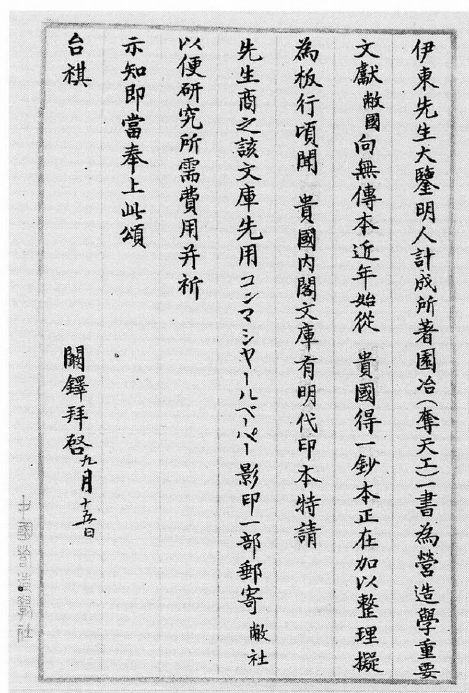 伊東先生大鑒明人計成所著園冶(奪天工)一書為營造學重要
文獻敝國向無傳本近年始從 貴國得一鈔本正在加以整理擬
為板行頃聞 貴國內閣文庫有明代印本特請
先生商之該文庫先用コンマシヤールペーパー影印一部郵寄 敝社
以便研究所需費用并祈
示知即當奉上此頌
台祺
闞鐸拜啓九月十五日
中國營造學社